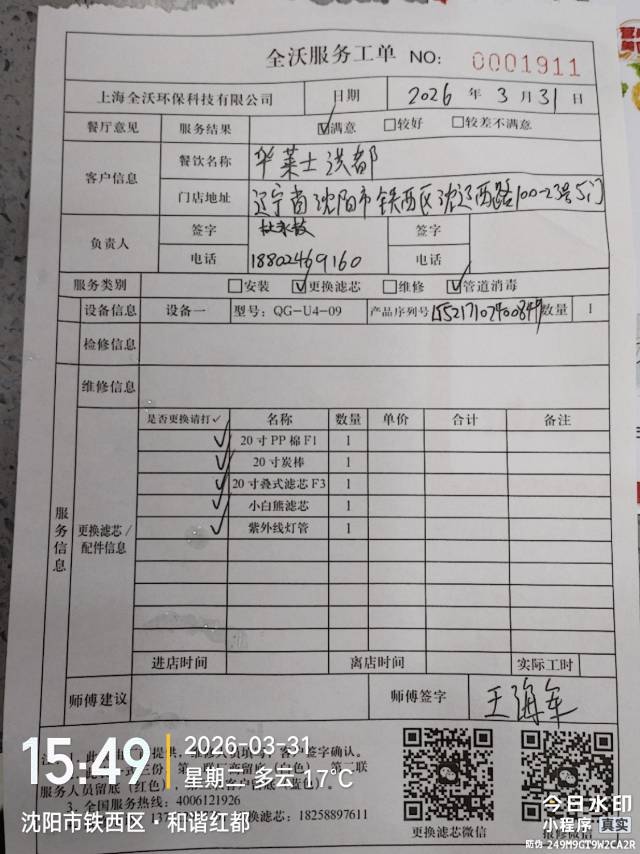 全沃服务工单 NO: 0001911
上海全沃环保科技有限公司 日期 2026 年 3 月 31 日
餐厅意见 服务结果 ☑满意 □较好 □较差不满意
客户信息 餐饮名称 华莱士 洪都
门店地址 辽宁省沈阳市铁西区沈辽西路100-23号5门
负责人 签字 签字
电话 18802469160 电话
服务类别 □安装 ☑更换滤芯 □维修 ☑管道消毒
设备信息 设备一 型号: QG-U4-09 产品序列号 数量 1
检修信息
维修信息
服务信息
更换滤芯/配件信息
是否更换请打✓ 名称 数量 单价 合计 备注
✓ 20寸PP棉F1 1
✓ 20寸炭棒 1
✓ 20寸叠式滤芯F3 1
✓ 小白熊滤芯 1
✓ 紫外线灯管 1
进店时间 离店时间 实际工时
师傅建议 师傅签字 王海军
客户签字确认。
服务人员留底（红色）
3、全国服务热线: 4006121926
滤芯: 18258897611
更换滤芯微信
报修微信
15:49
2026-03-31
星期二 多云 17℃
沈阳市铁西区·和谐红都
今日水印
小程序 真实
防伪 249M9GT9W2CA2R